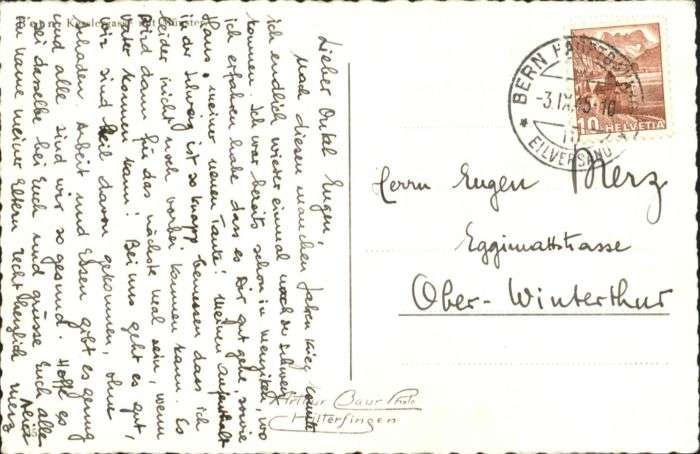 Bern Kesslergasse mit Münster
Lieber Onkel Eugen,
nach diesen manchen Jahren Krieg konnte
ich endlich wieder einmal nach der Schweiz
kommen. Ich war bereits schon in Menziken, wo
ich erfahren habe dass es Dir gut gehe, sowie
Hans, meiner neuen Tante! Meinen Aufenthalt
in der Schweiz ist so knapp bemessen dass ich
leider nicht noch vorbei kommen kann. Es
wird dann für das nächste Mal sein, wenn
Vater kommen kann! Bei uns geht es gut,
wir sind heil davon gekommen, ohne
Schaden. Arbeit und Essen gibt es genug
und alle sind wir so gesund. Hoffe es
sei dasselbe bei Euch und grüsse Euch alle
im Name meiner Eltern recht herzlich
Merz
BERN
-3.IX.45-10
EILVERSAND
10 HELVETIA
Herrn Eugen Merz
Eggimattstrasse
Ober-Winterthur
Arthur Baur Photo
Hilterfingen